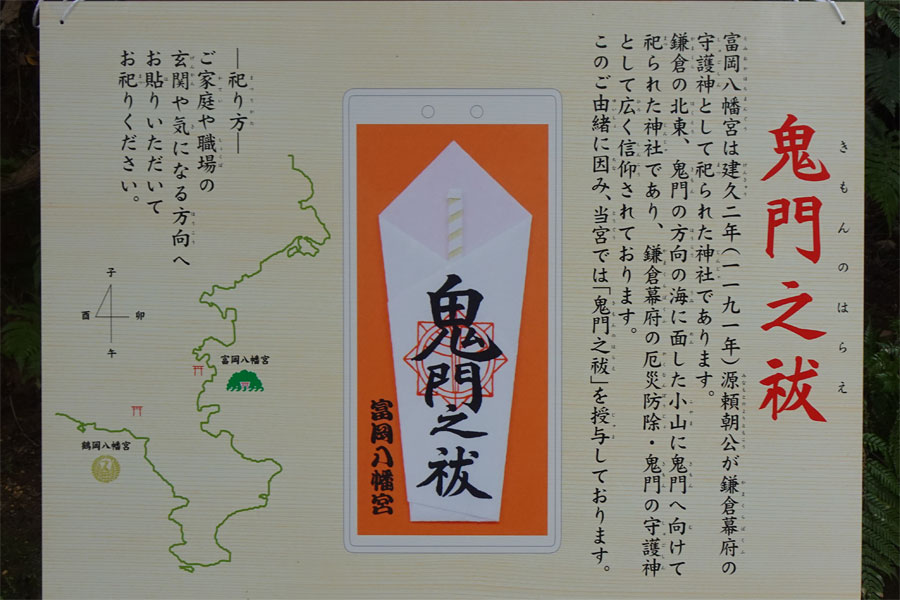 鬼門之祓
きもんのはらえ
富岡八幡宮は建久二年（一一九一年）源頼朝公が鎌倉幕府の
守護神として祀られた神社であります。
鎌倉の北東、鬼門の方向の海に面した小山に鬼門へ向けて
祀られた神社であり、鎌倉幕府の厄災防除・鬼門の守護神
として広く信仰されております。
このご由緒に因み、当宮では「鬼門之祓」を授与しております。
鬼門之祓
富岡八幡宮
―祀り方―
ご家庭や職場の
玄関や気になる方向へ
お貼りいただいて
お祀りください。
子
酉
卯
午
富岡八幡宮
鶴岡八幡宮